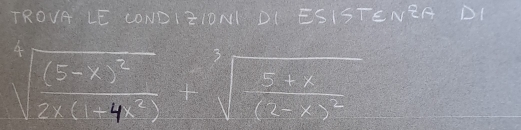 TROVA LE CONDIZIONI DI ESISTENZA DI
\sqrt[4]{\frac{(5-x)^2}{2x(1+4x^2)}} + \sqrt[3]{\frac{5+x}{(2-x)^2}}